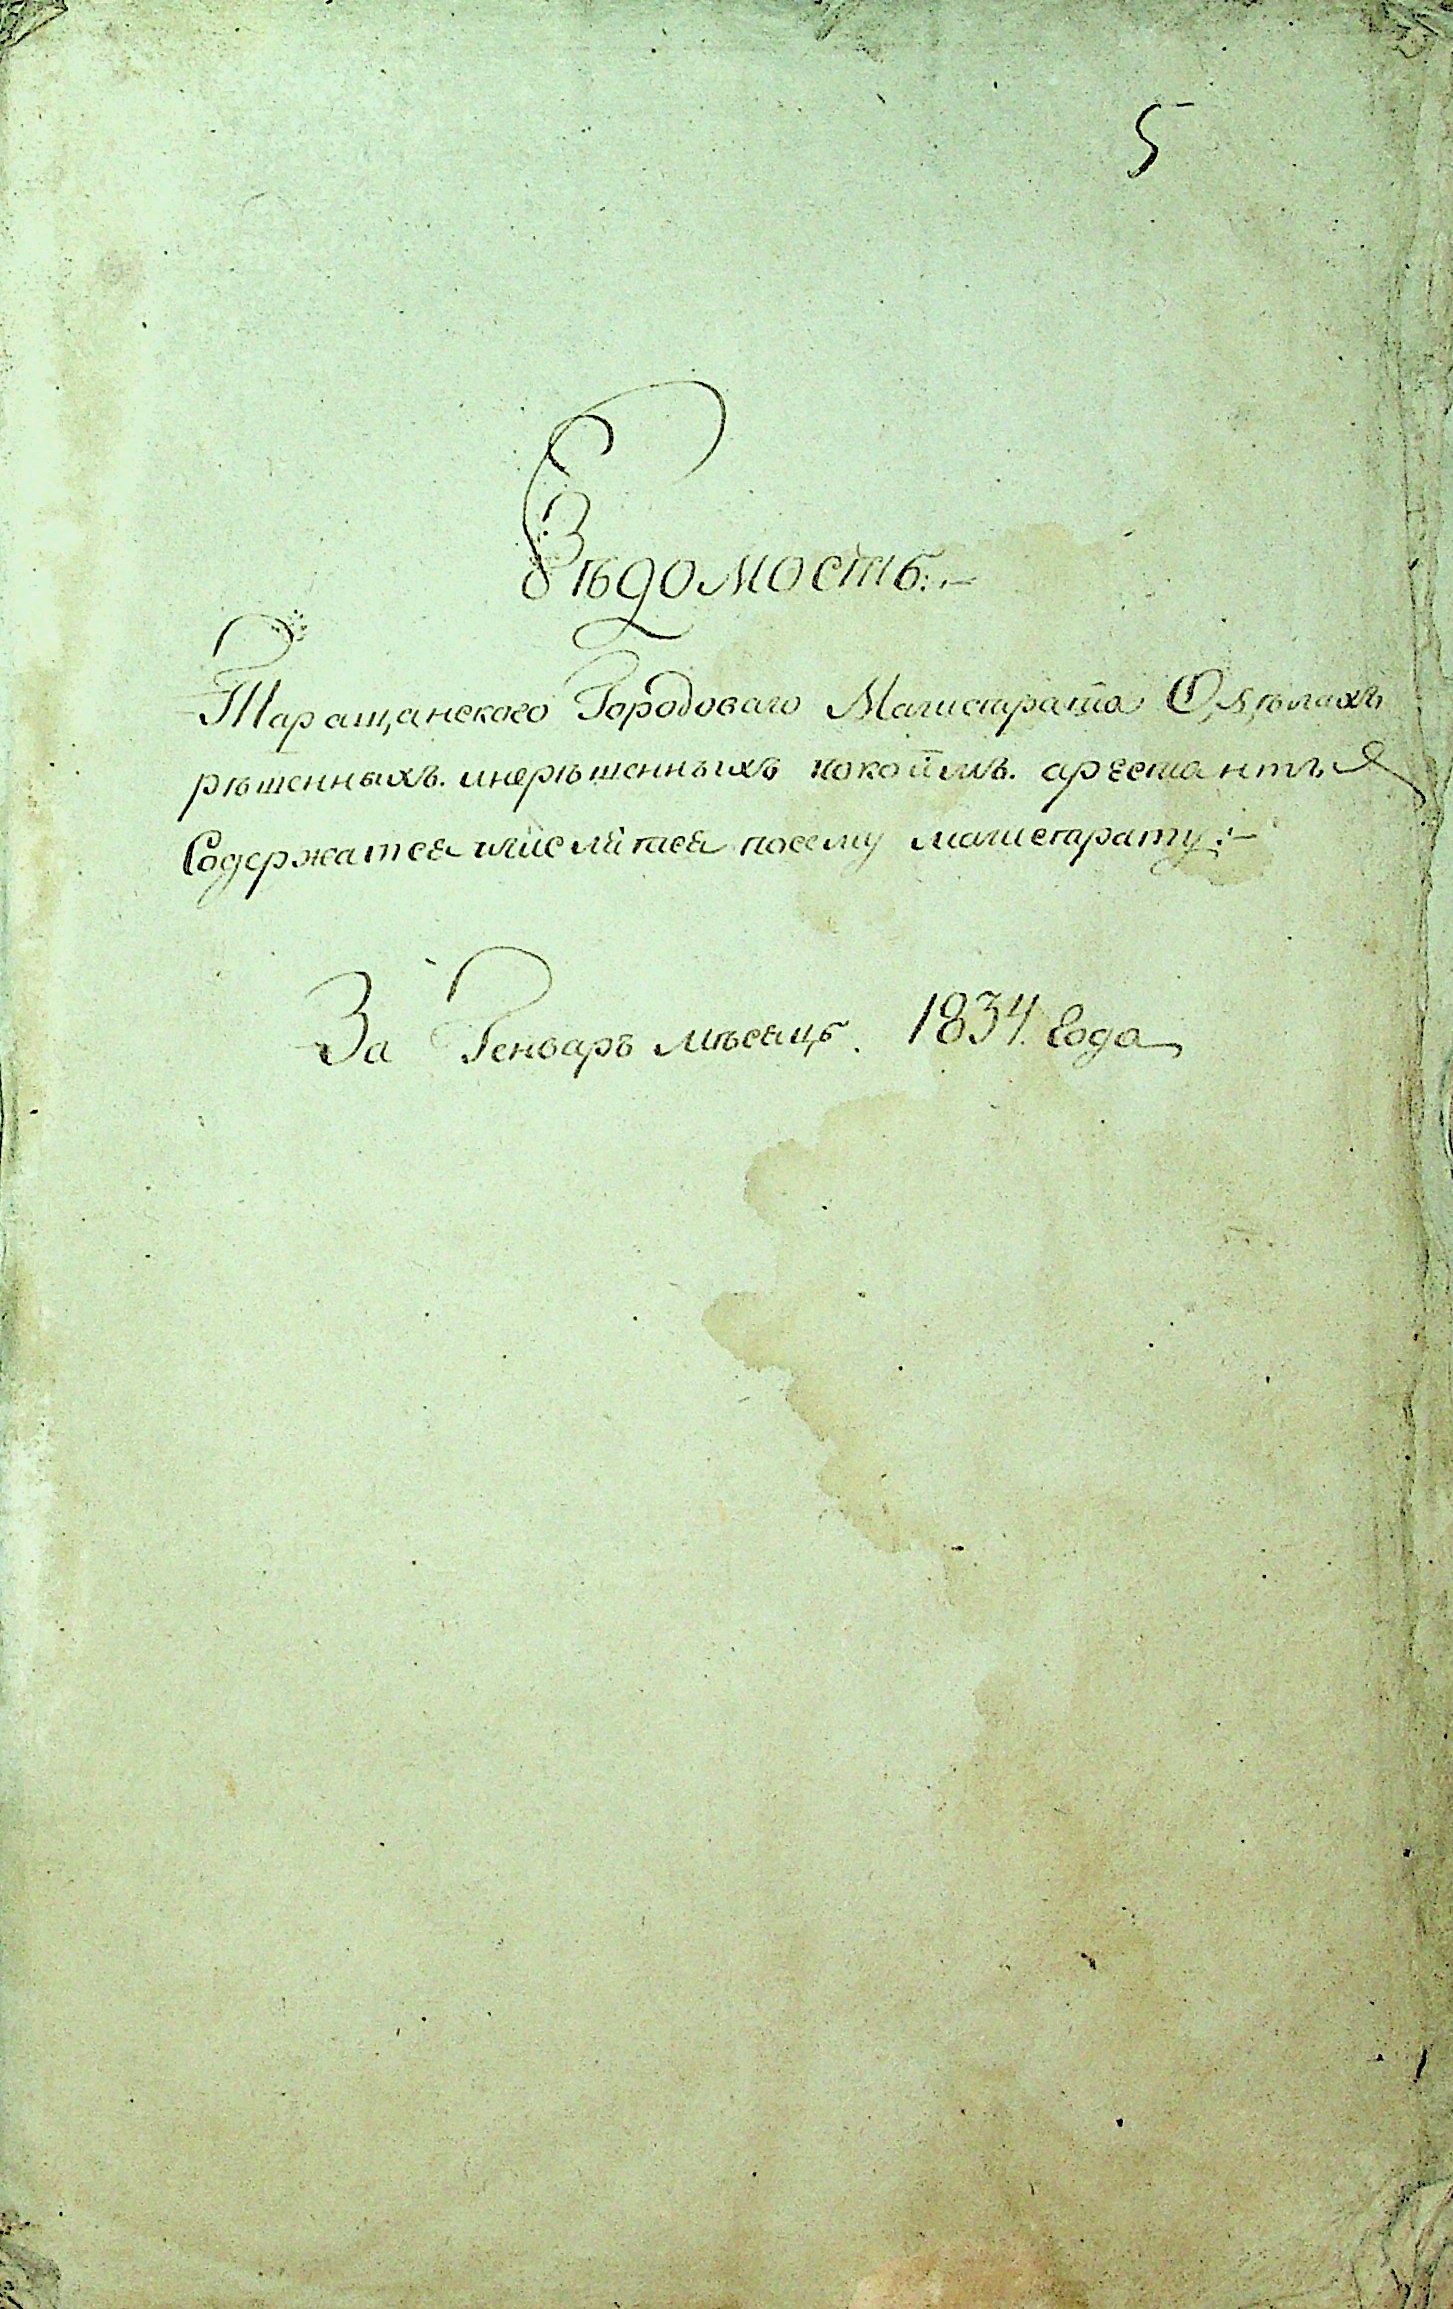 5
Вѣдомость:—
Таращанского Городоваго Магистрата О дѣлахъ
рѣшенныхъ. инерѣшенныхъ покоимъ. арестанты
Содержатся ичислятся посему магистрату:—
За Генварь мѣсяцъ. 1834. Года